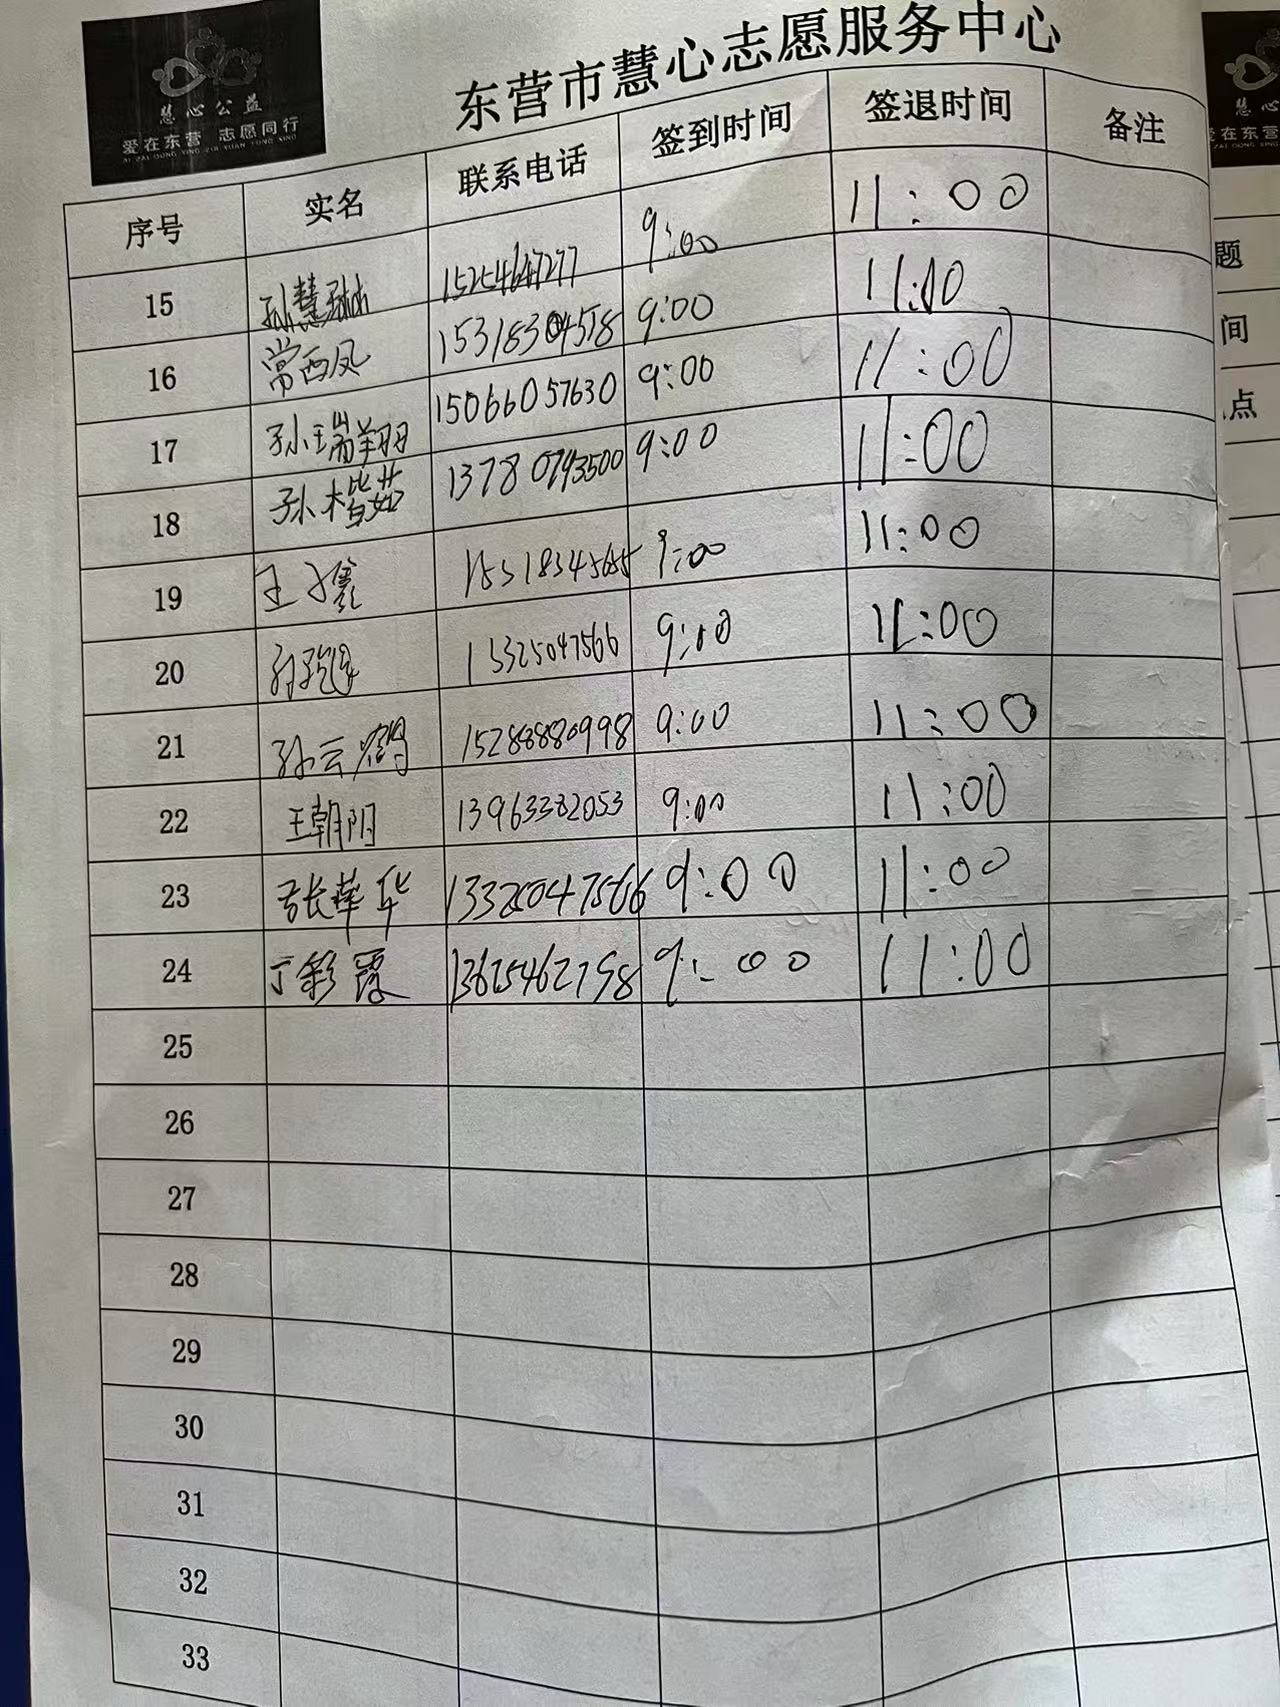 东营市慧心志愿服务中心
慧心公益
爱在东营 志愿同行
AI ZAI DONG YING ZHI YUAN TONG XING
序号 实名 联系电话 签到时间 签退时间 备注
15 孙慧琳 15254647277 9:00 11:00
16 常西凤 15318304518 9:00 11:00
17 孙瑞翔 15066057630 9:00 11:00
18 孙楷茹 13780793500 9:00 11:00
19 王 9:00 11:00
20 13325047566 9:00 11:00
21 孙云鹤 15288880998 9:00 11:00
22 王朝阳 13963382053 9:00 11:00
23 张華华 13325047566 9:00 11:00
24 丁彩霞 13615462798 9:00 11:00
25
26
27
28
29
30
31
32
33
慧心
爱在东营
题
间
点